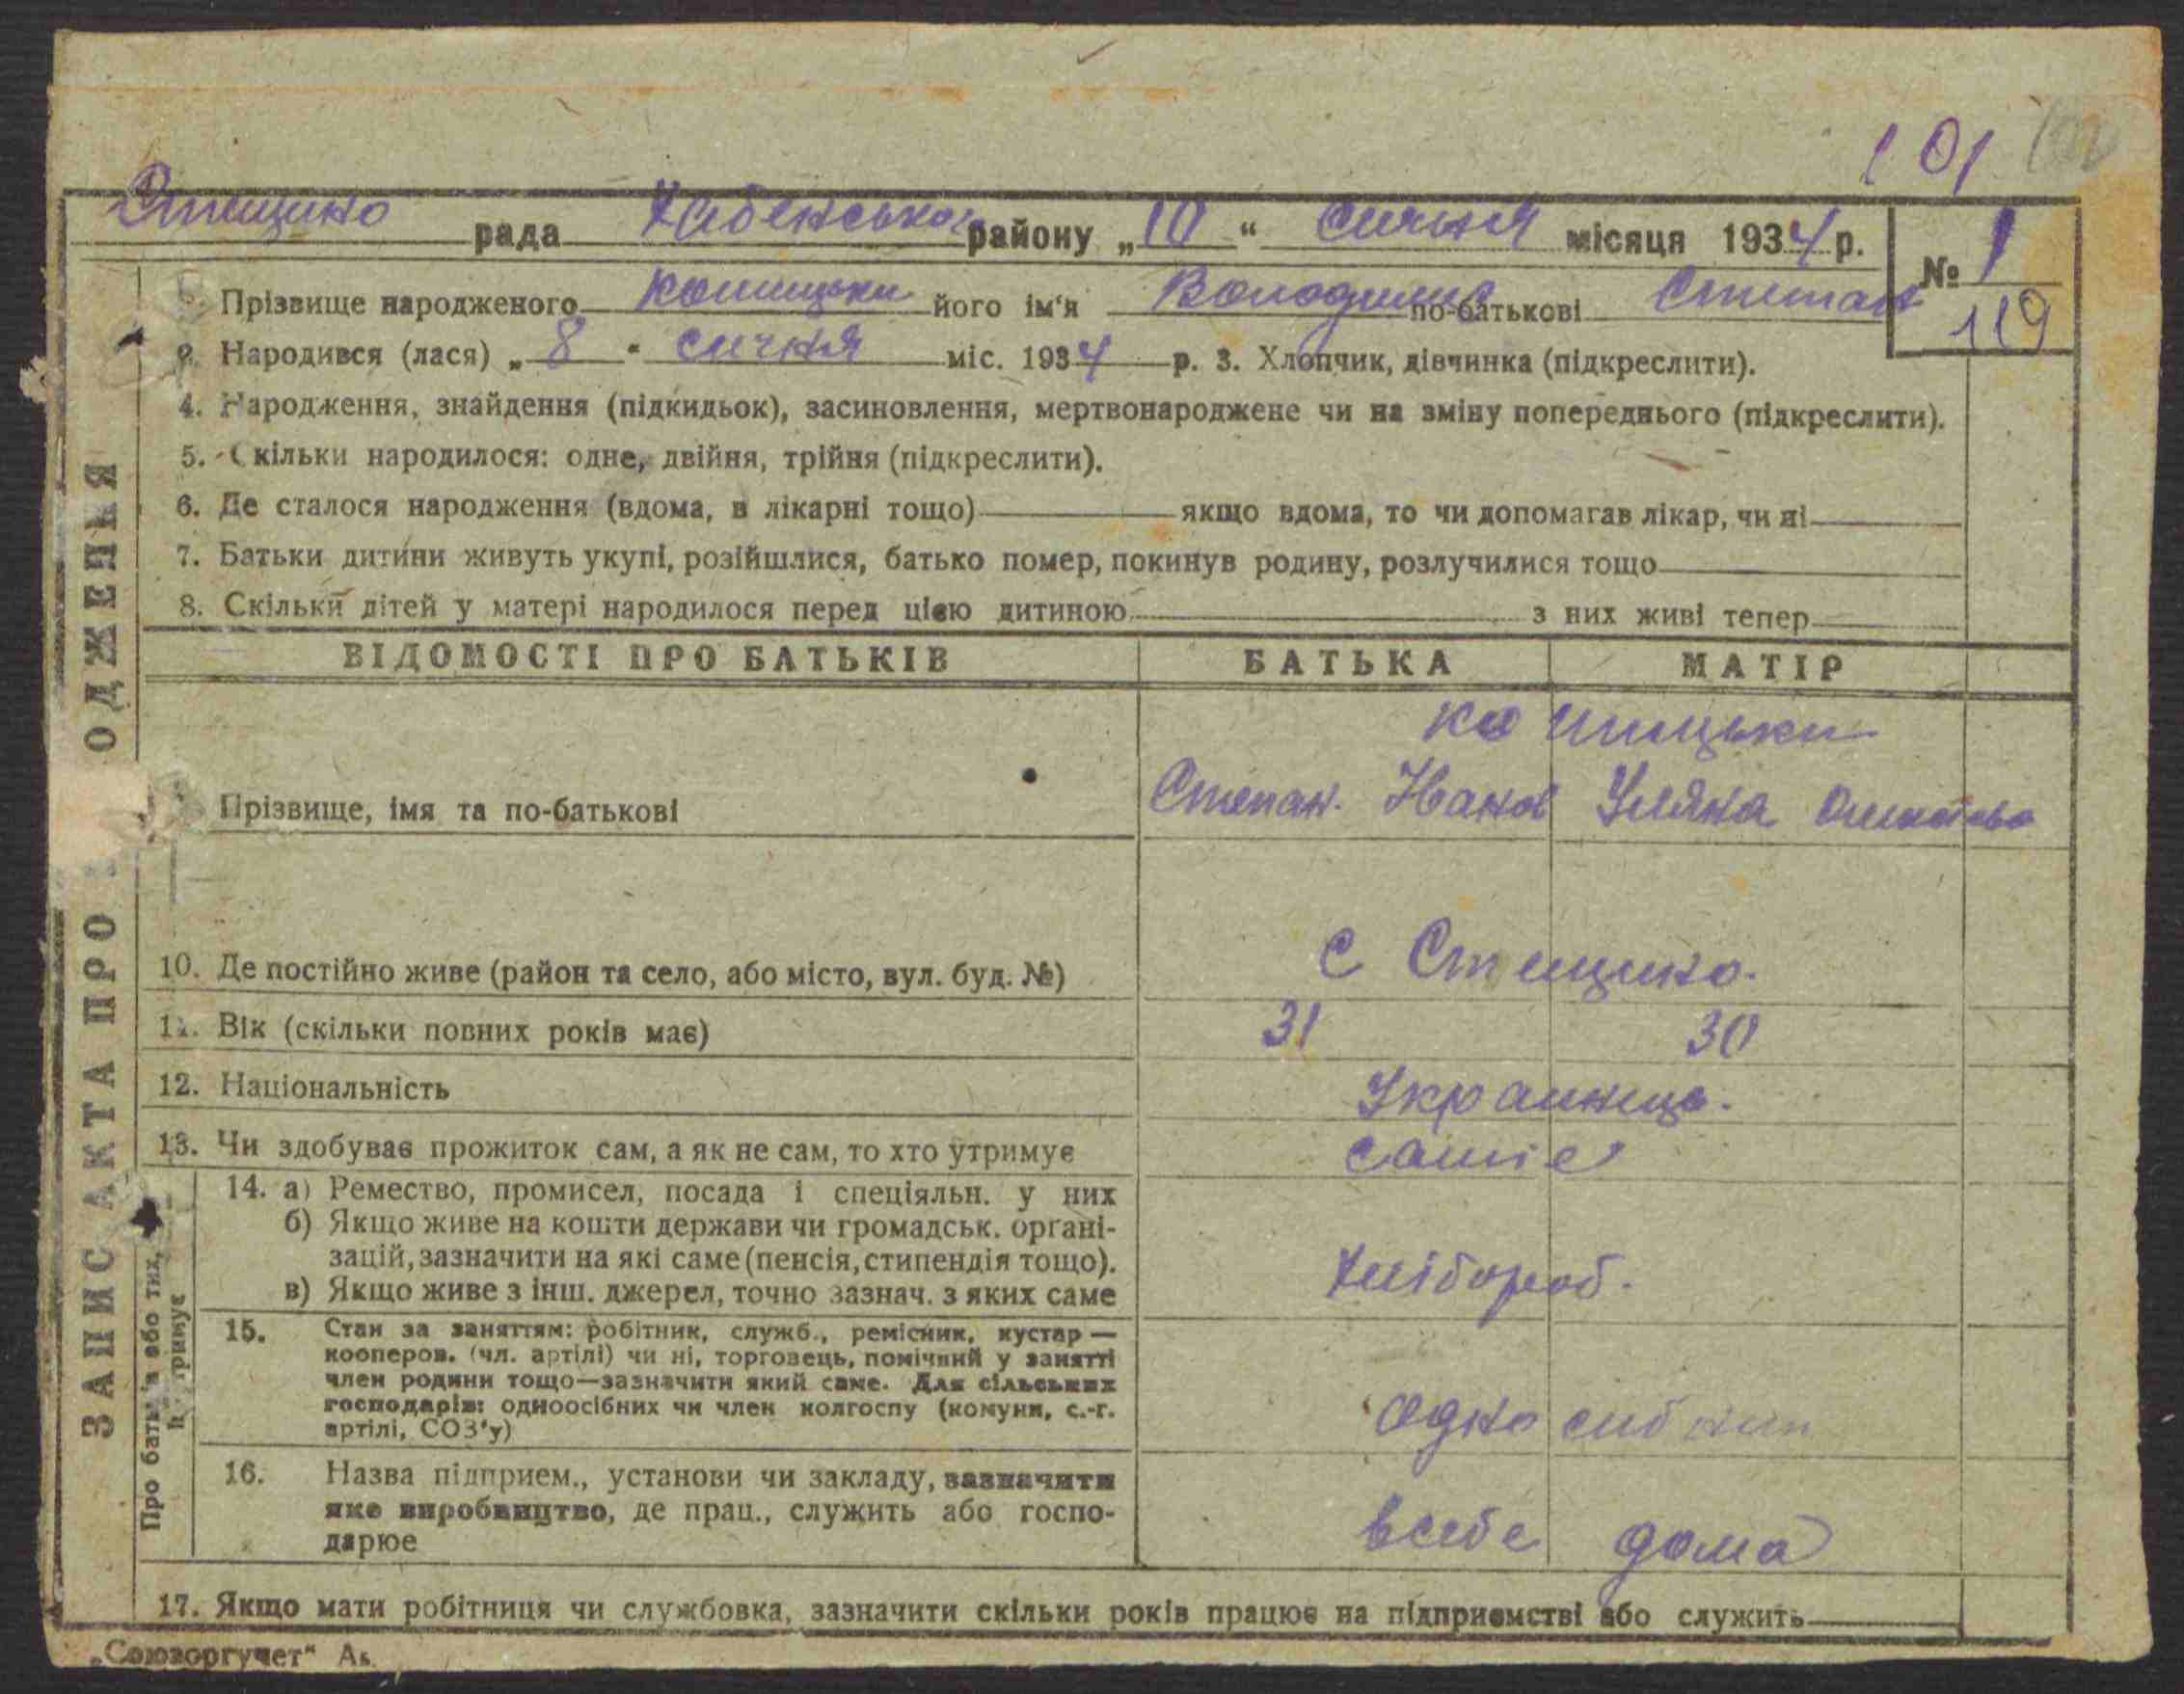 101
Стещино рада Хабенського району „10“ сичня місяця 1934 р. № 1
Прізвище народженого його ім'я Володимир по-батькові Степан 119
2. Народився (лася) „8“ сичня міс. 1934 р. 3. Хлопчик, дівчинка (підкреслити).
4. Народження, знайдення (підкидьок), засиновлення, мертвонароджене чи на зміну попереднього (підкреслити).
5. Скільки народилося: одне, двійня, трійня (підкреслити).
6. Де сталося народження (вдома, в лікарні тощо) якщо вдома, то чи допомагав лікар, чи ні
7. Батьки дитини живуть укупі, розійшлися, батько помер, покинув родину, розлучилися тощо
8. Скільки дітей у матері народилося перед цією дитиною з них живі тепер
ВІДОМОСТІ ПРО БАТЬКІВ БАТЬКА МАТІР
Прізвище, імя та по-батькові Степан. Иванов Уляна
10. Де постійно живе (район та село, або місто, вул. буд. №) с Стещино.
11. Вік (скільки повних років має) 31 30
12. Національність Украинці.
13. Чи здобуває прожиток сам, а як не сам, то хто утримує самі
14. а) Ремество, промисел, посада і спеціяльн. у них
б) Якщо живе на кошти держави чи громадськ. органі-
зацій, зазначити на які саме (пенсія, стипендія тощо).
в) Якщо живе з інш. джерел, точно зазнач. з яких саме
хлібороб.
15. Стан за заняттям: робітник, служб., ремісник, кустар —
кооперов. (чл. артілі) чи ні, торговець, помічний у занятті
член родини тощо—зазначити який саме. Для сільських
господарів: одноосібних чи член колгоспу (комуни, с.-г.
артілі, СОЗ'у)
односибник
16. Назва підприєм., установи чи закладу, зазначити
яке виробництво, де прац., служить або госпо-
дарюе
всебе дома
17. Якщо мати робітниця чи службовка, зазначити скільки років працює на підприємстві або служить
„Союзоргучет“
ЗАПИС АКТА ПРО ОДЖЕННЯ